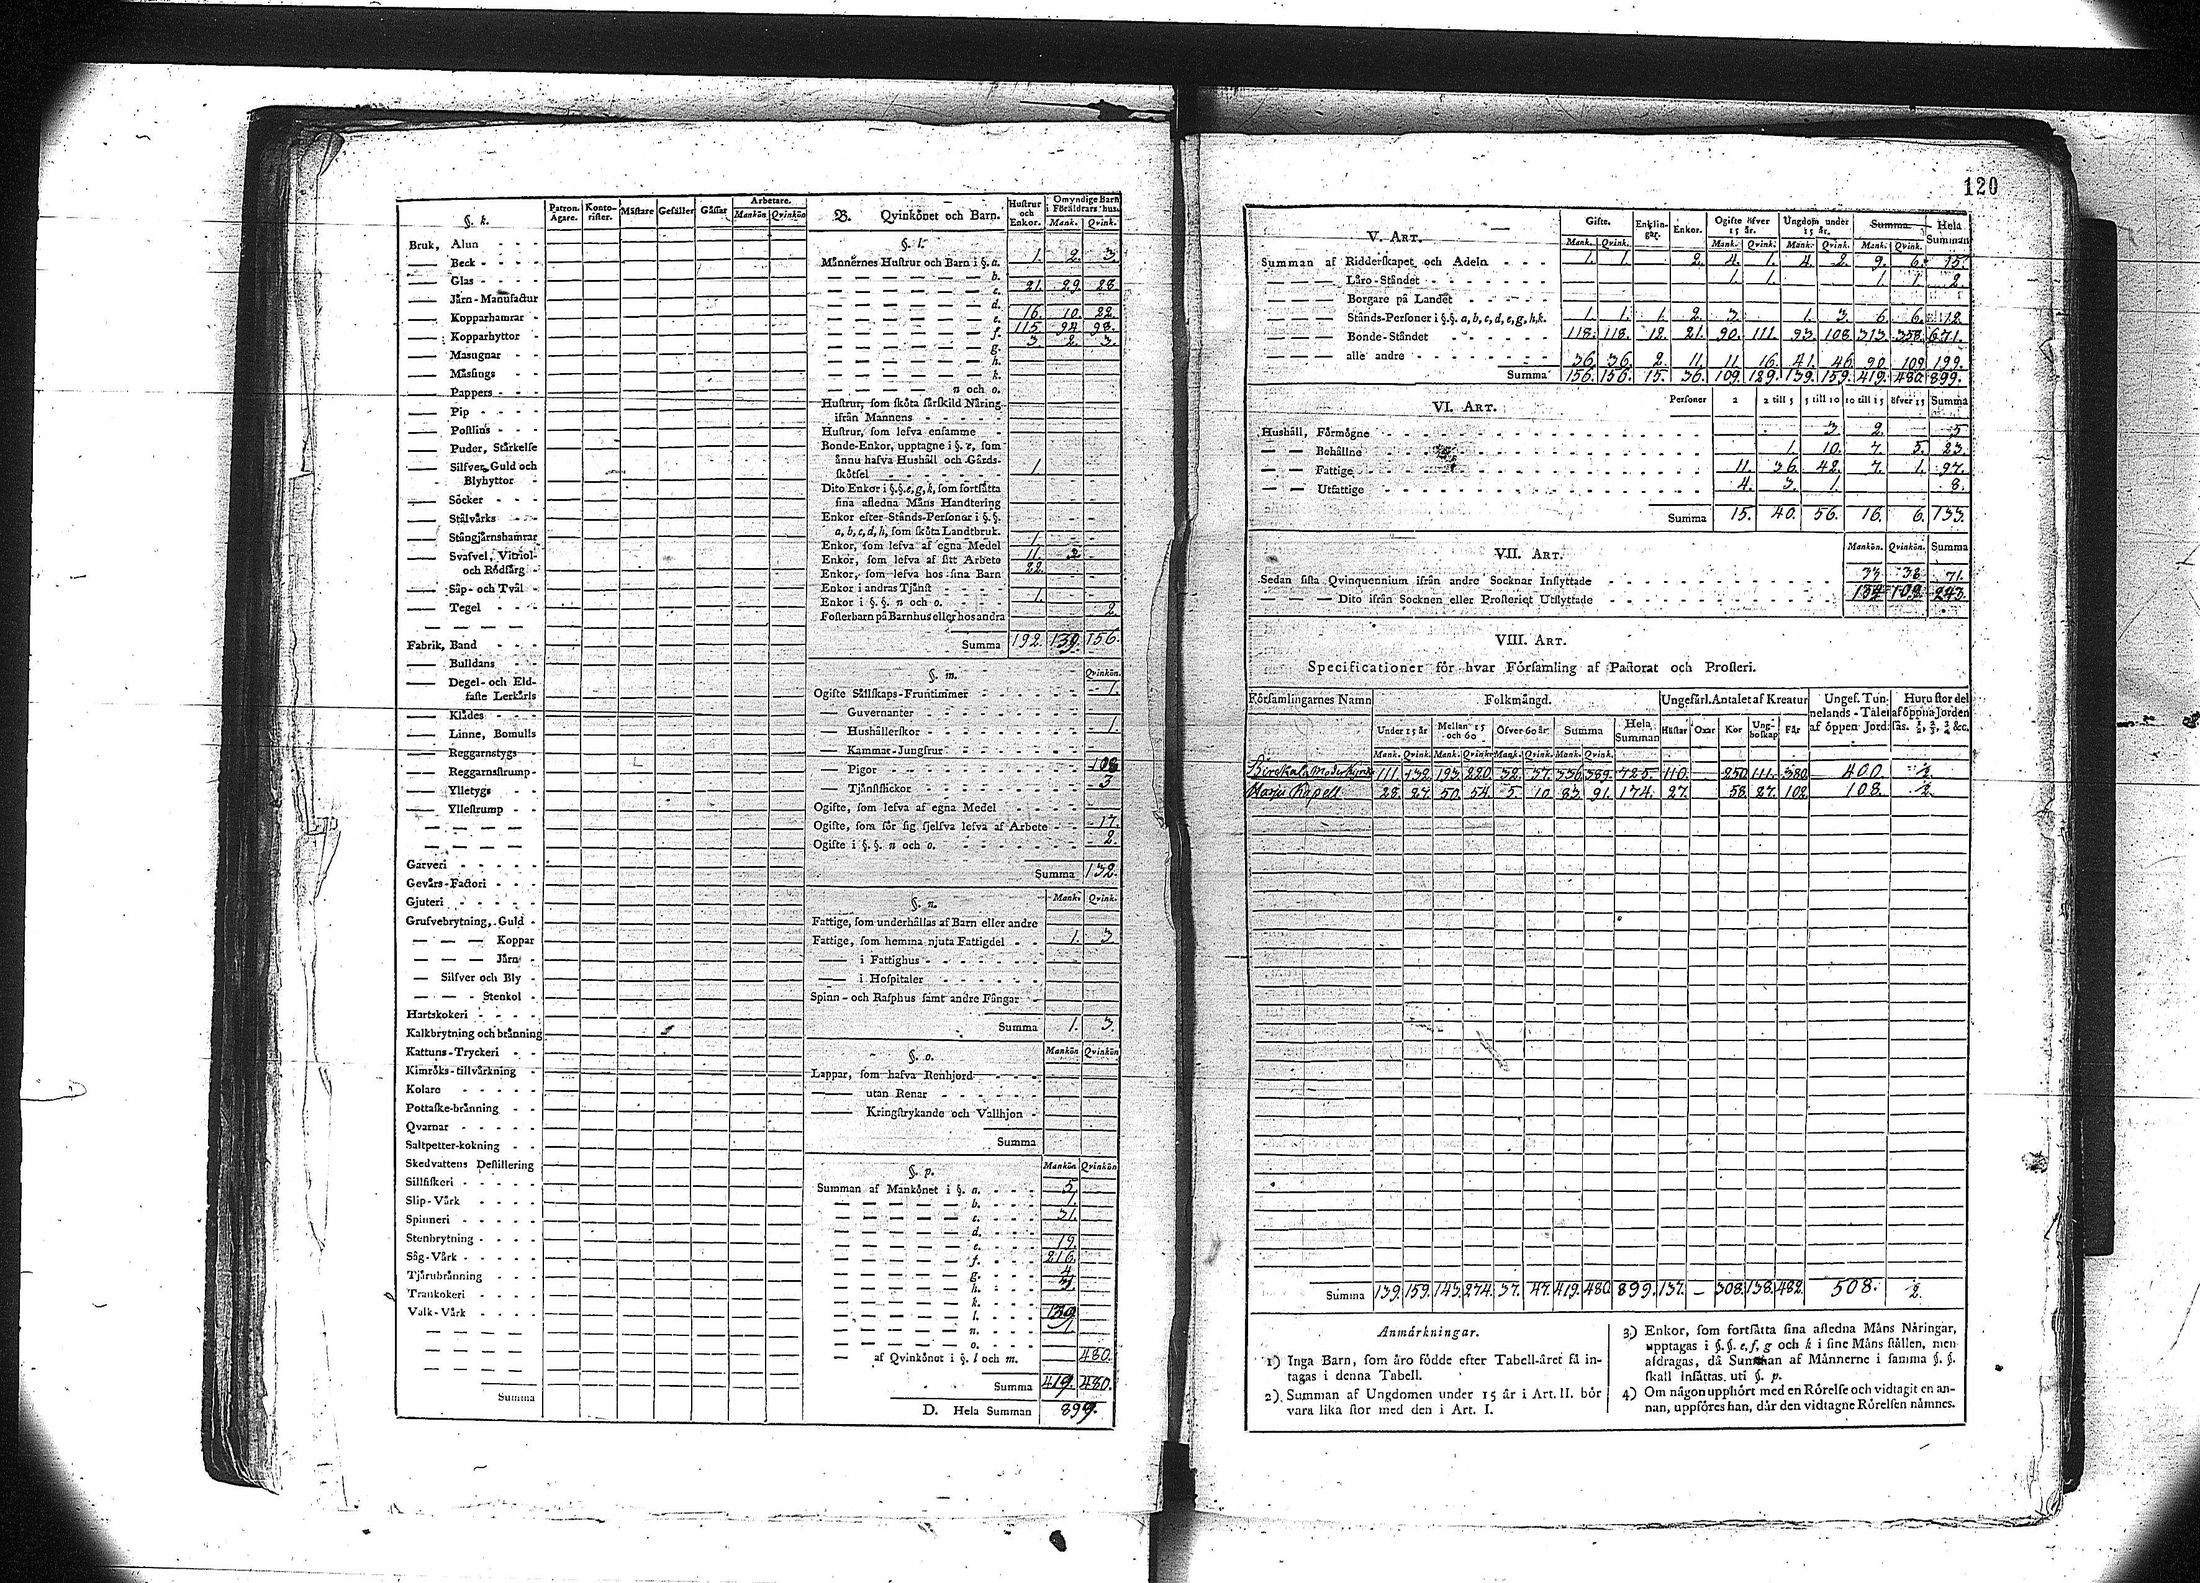 §. k.
Patron. Ägare.
Konto-rister.
Mästare
Gesäller
Gåssar
Arbetare.
Mankön Qvinkön
Bruk, Alun
Beck
Glas
Järn-Manufactur
Kopparhamrar
Kopparhyttor
Masugnar
Mässings
Pappers
Pip
Postlins
Puder, Stärkelse
Silfver, Guld och
Blyhyttor
Söcker
Stålvärks
Stångjärnshamrar
Svafvel, Vitriol-
och Rödfärg
Såp- och Tvål
Tegel
Fabrik, Band
Bulldans
Degel- och Eld-
faste Lerkärls
Klädes
Linne, Bomulls
Reggarnstygs
Reggarnsstrump
Ylletygs
Yllestrump
Garveri
Gevärs-Factori
Gjuteri
Grufvebrytning, Guld
Koppar
Järn
Silfver och Bly
Stenkol
Hartskokeri
Kalkbrytning och bränning
Kattuns-Tryckeri
Kimröks-tillvärkning
Kolare
Pottaske-bränning
Qvarnar
Saltpetter-kokning
Skedvattens Destillering
Sillfiskeri
Slip-Värk
Spinneri
Stenbrytning
Såg-Värk
Tjärubränning
Trankokeri
Valk-Värk
Summa
B. Qvinkönet och Barn.
Hustrur och Enkor.
Omyndige Barn i Föräldrars hus.
Mank. Qvink.
§. l.
Männernes Hustrur och Barn i §. a. 1. 2. 3.
b.
c. 21. 29. 28
d.
e. 16. 10. 22.
f. 115. 94. 98.
g. 3. 2. 3
h.
k.
n och o.
Hustrur, som sköta särskild Näring
ifrån Mannens
Hustrur, som lefva ensamme
Bonde-Enkor, upptagne i §. e, som
ännu hafva Hushåll och Gårds-
skötsel 1.
Dito Enkor i §.§. e, g, k, som fortsätta
sina aflednа Mäns Handtering
Enkor efter Stånds-Personer i §.§.
a, b, c, d, h, som sköta Landtbruk.
Enkor, som lefva af egna Medel 1.
Enkor, som lefva af sitt Arbete 11. 2
Enkor, som lefva hos sina Barn 22.
Enkor i andras Tjänst
Enkor i §.§. n och o. 1.
Fosterbarn på Barnhus eller hos andra 2
Summa 192. 139. 156.
§. m.
Qvinkön.
Ogifte Sällskaps-Fruntimmer 1.
Guvernanter
Hushållerskor 1.
Kammar-Jungfrur
Pigor 108
Tjänstflickor 3
Ogifte, som lefva af egna Medel
Ogifte, som för sig sjelfva lefva af Arbete 17.
Ogifte i §.§. n och o. 2.
Summa 132.
§. n.
Mank. Qvink.
Fattige, som underhållas af Barn eller andre
Fattige, som hemma njuta Fattigdel 1. 3
i Fattighus
i Hospitaler
Spinn- och Rasphus samt andre Fångar
Summa 1. 3.
§. o.
Mankön Qvinkön
Lappar, som hafva Renhjord
utan Renar
Kringstrykande och Vallhjon
Summa
§. p.
Mankön Qvinkön
Summan af Mankönet i §. a. 5.
b. 1.
c. 31.
d.
e. 19.
f. 216.
g. 4
h.
k.
l. 139
n. 1
o.
af Qvinkönet i §. l och m. 480.
Summa 419. 480.
D. Hela Summan 899.
120
V. Art.
Gifte. Enklin-gar. Enkor. Ogifte öfver 15 år. Ungdom under 15 år. Summa Hela Summan
Mank. Qvink. Mank. Qvink. Mank. Qvink. Mank. Qvink.
Summan af Ridderskapet och Adeln 1. 1. 2. 4. 1. 4. 2. 9. 6. 15.
Läro-Ståndet 1. 1. 1. 1. 2.
Borgare på Landet
Stånds-Personer i §.§. a, b, c, d, e, g, h, k. 1. 1. 1. 2. 3. 1. 3. 6. 6. 12.
Bonde-Ståndet 118. 118. 12. 21. 90. 111. 93. 108 313. 358. 671.
alle andre 36. 36. 2. 11. 11. 16. 41. 46. 90. 109 199.
Summa 156. 156. 15. 36. 109. 129. 139. 159. 419. 480. 899.
VI. Art.
Personer 2 2 till 5 5 till 10 10 till 15 öfver 15 Summa
Hushåll, Förmögne 3 2. 5
Behållne 1. 10. 7. 5. 23.
Fattige 11. 36. 42. 7. 1. 97.
Utfattige 4. 3. 1. 8.
Summa 15. 40. 56. 16. 6. 133.
VII. Art.
Mankön. Qvinkön. Summa
Sedan sista Qvinquennium ifrån andre Socknar Inflyttade 33 38 71.
Dito ifrån Socknen eller Prosteriet Utflyttade 134 109. 243.
VIII. Art.
Specificationer för hvar Församling af Pastorat och Prosteri.
Församlingarnes Namn
Folkmängd.
Ungefärl. Antalet af Kreatur
Ungef. Tun-nelands-Talet af öppen Jord.
Huru stor del af öppna Jorden sås. ½, ⅔, ¾ &c.
Under 15 år Mellan 15 och 60 Öfver 60 år Summa Hela Summan Hästar Oxar Kor Ung-boskap Får
Mank. Qvink. Mank. Qvink. Mank. Qvink. Mank. Qvink.
Birckala Moderkyrka 111. 132. 193. 220. 32. 37. 336. 389. 725. 110. 250. 111. 380. 400. ½
Harju Kapell 28. 27. 50. 54. 5. 10. 83. 91. 174. 27. 58. 27. 102. 108. ½
Summa 139. 159. 143. 274. 37. 47. 419. 480. 899. 137. — 308. 138. 482. 508. ½
Anmärkningar.
1) Inga Barn, som äro födde efter Tabell-året få in-
tagas i denna Tabell.
2) Summan af Ungdomen under 15 år i Art. II. bör
vara lika stor med den i Art. I.
3) Enkor, som fortsätta sina aflednа Mäns Näringar,
upptagas i §.§. e, f, g och k i sine Mäns ställen, men
afdragas, då Summan af Männerne i samma §.§.
skall insättas uti §. p.
4) Om någon upphört med en Rörelse och vidtagit en an-
nan, uppföres han, där den vidtagne Rörelsen nämnes.